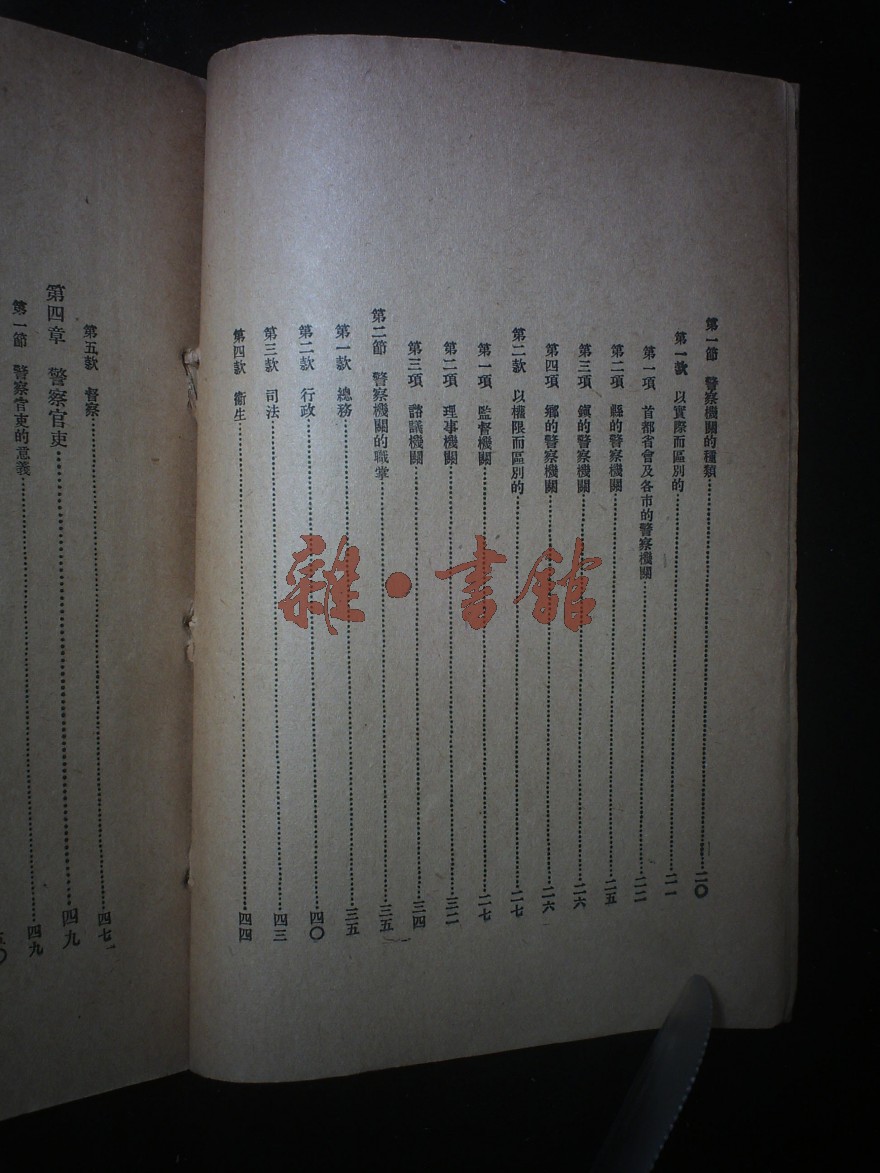 第一節　警察機關的種類……二〇
第一款　以實際而區別的……二一
第一項　首都省會及各市的警察機關……二二
第二項　縣的警察機關……二五
第三項　鎮的警察機關……二六
第四項　鄉的警察機關……二六
第二款　以權限而區別的……二七
第一項　監督機關……二七
第二項　理事機關……三二
第三項　諮議機關……三四
第二節　警察機關的職掌……三五
第一款　總務……三五
第二款　行政……四〇
第三款　司法……四三
第四款　衞生……四四
第五款　督察……四七
第四章　警察官吏……四九
第一節　警察官吏的意義……四九
雜·書館